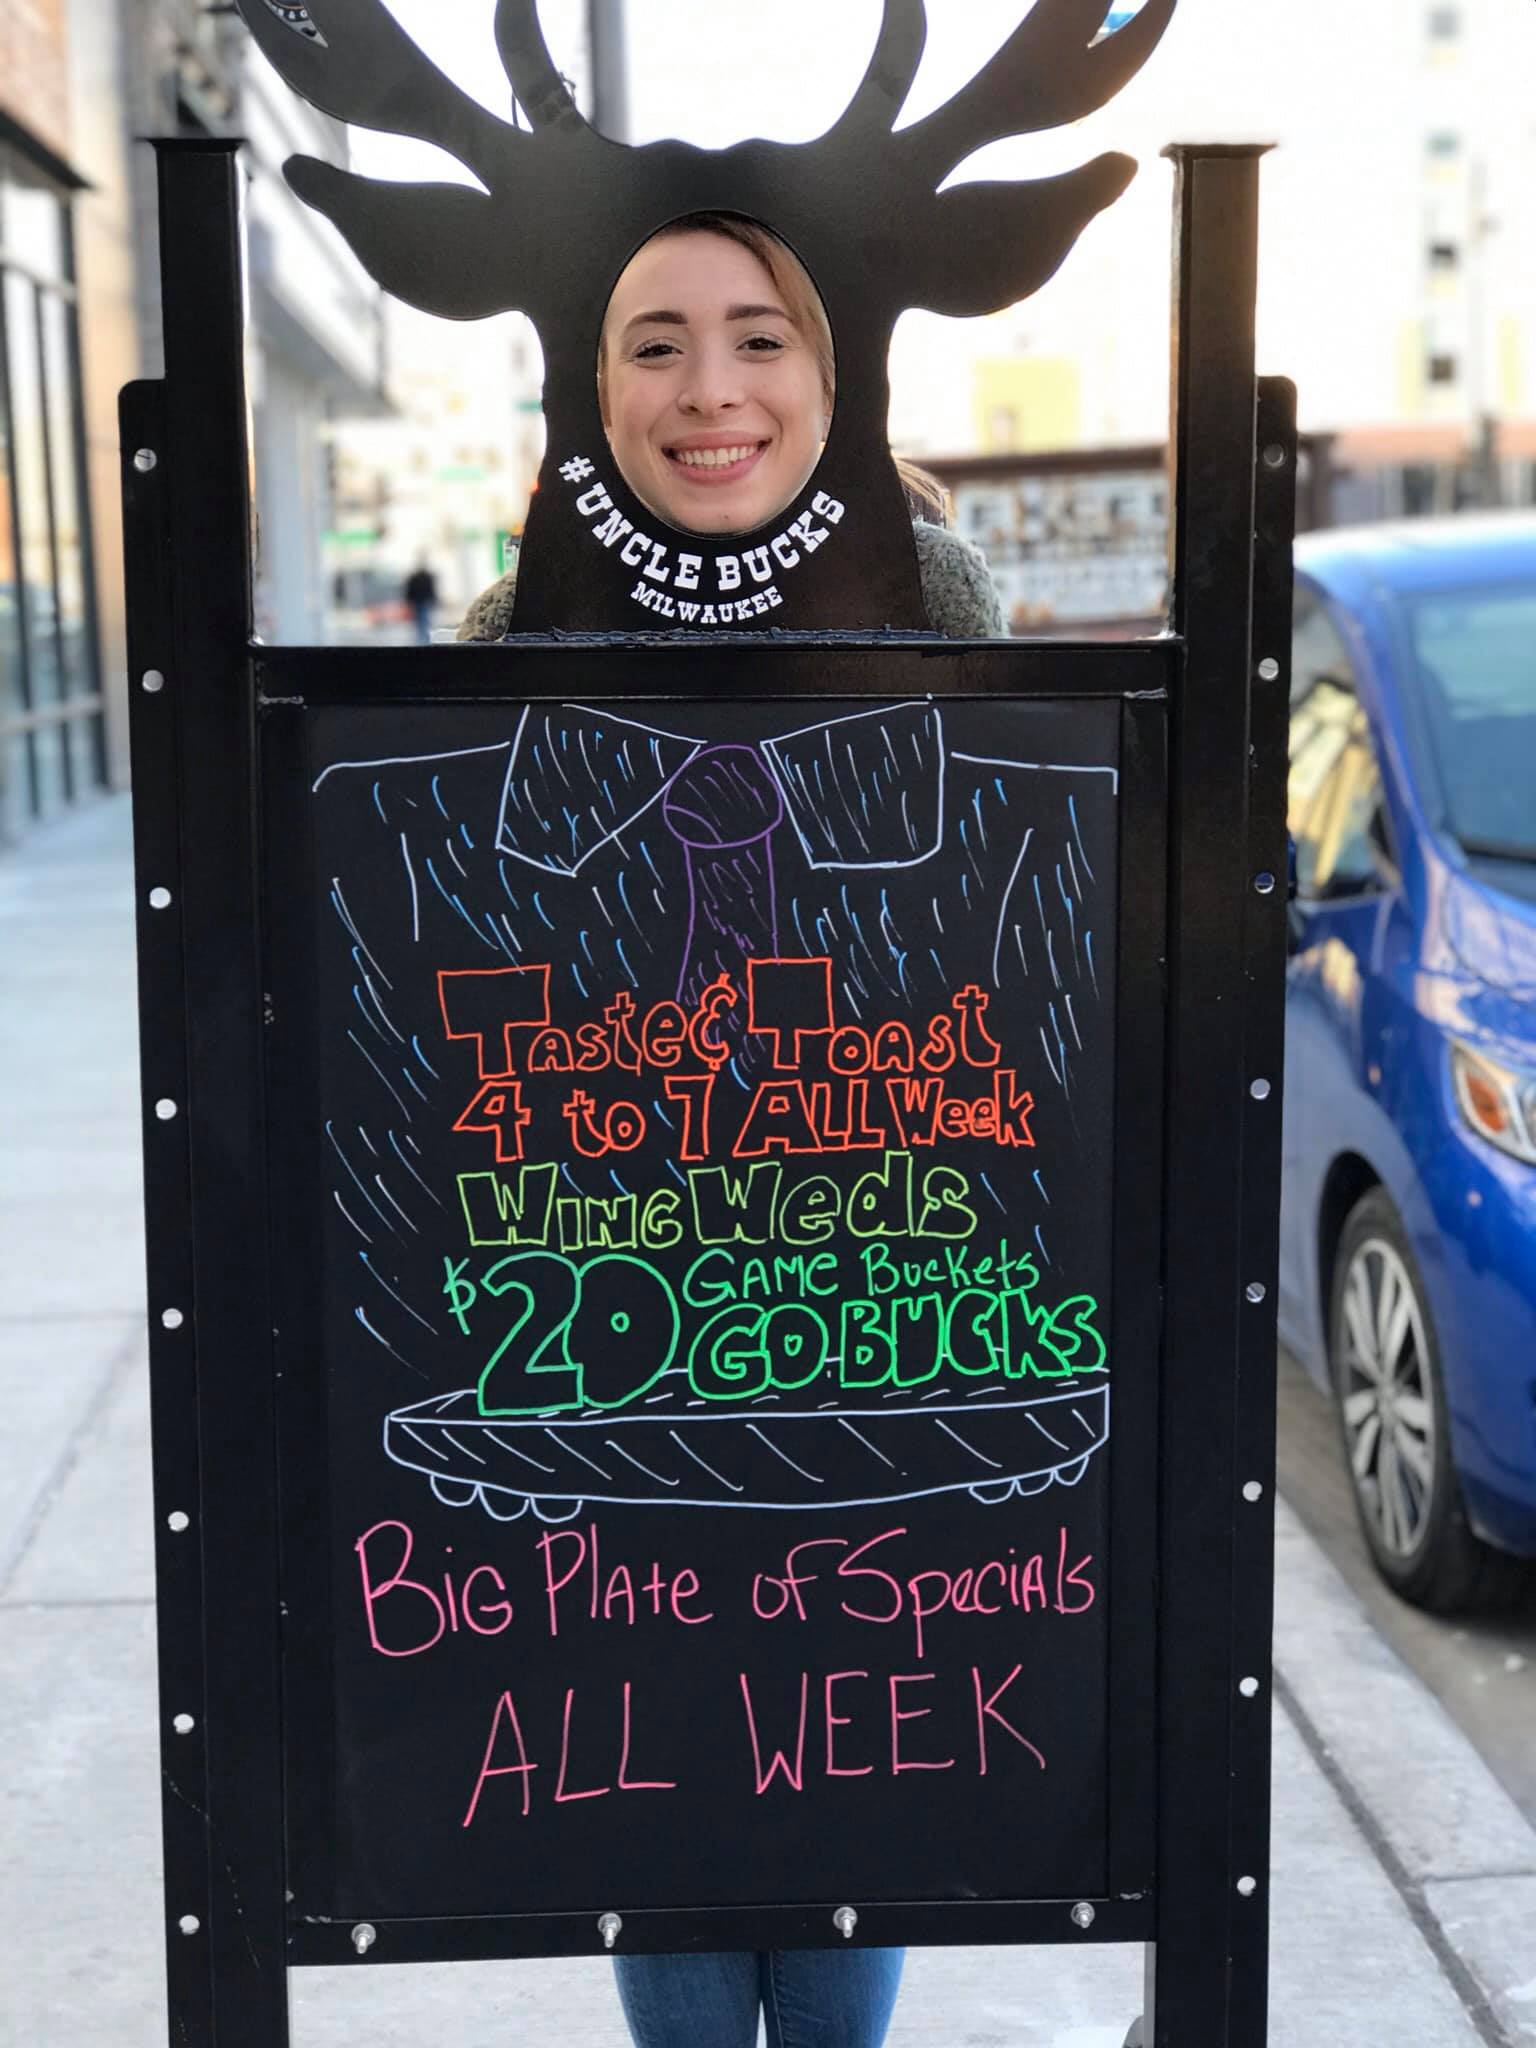 #UNCLE BUCKS
MILWAUKEE
Taste & Toast
4 to 7 ALL Week
WING Weds
$20 GAME Buckets
GO BUCKS
BIG Plate of Specials
ALL WEEK